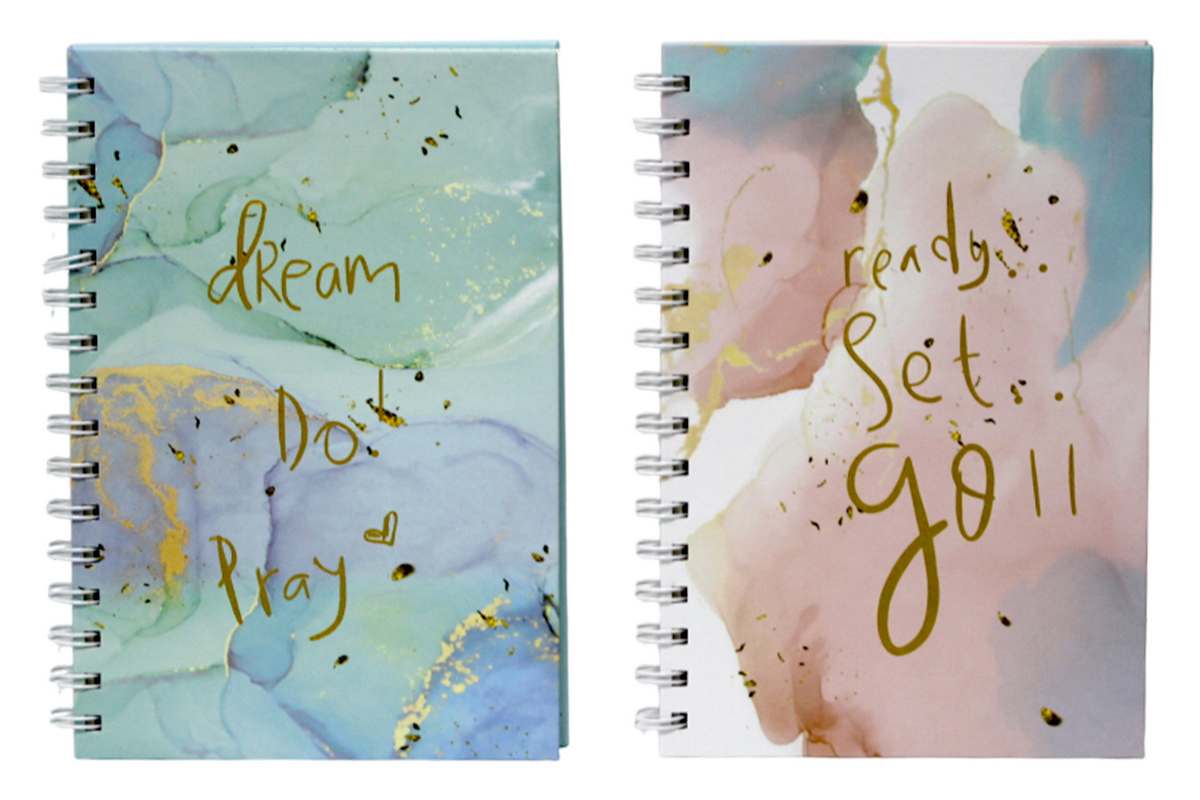 dream
Do!
Pray
ready..
Set..
go!!